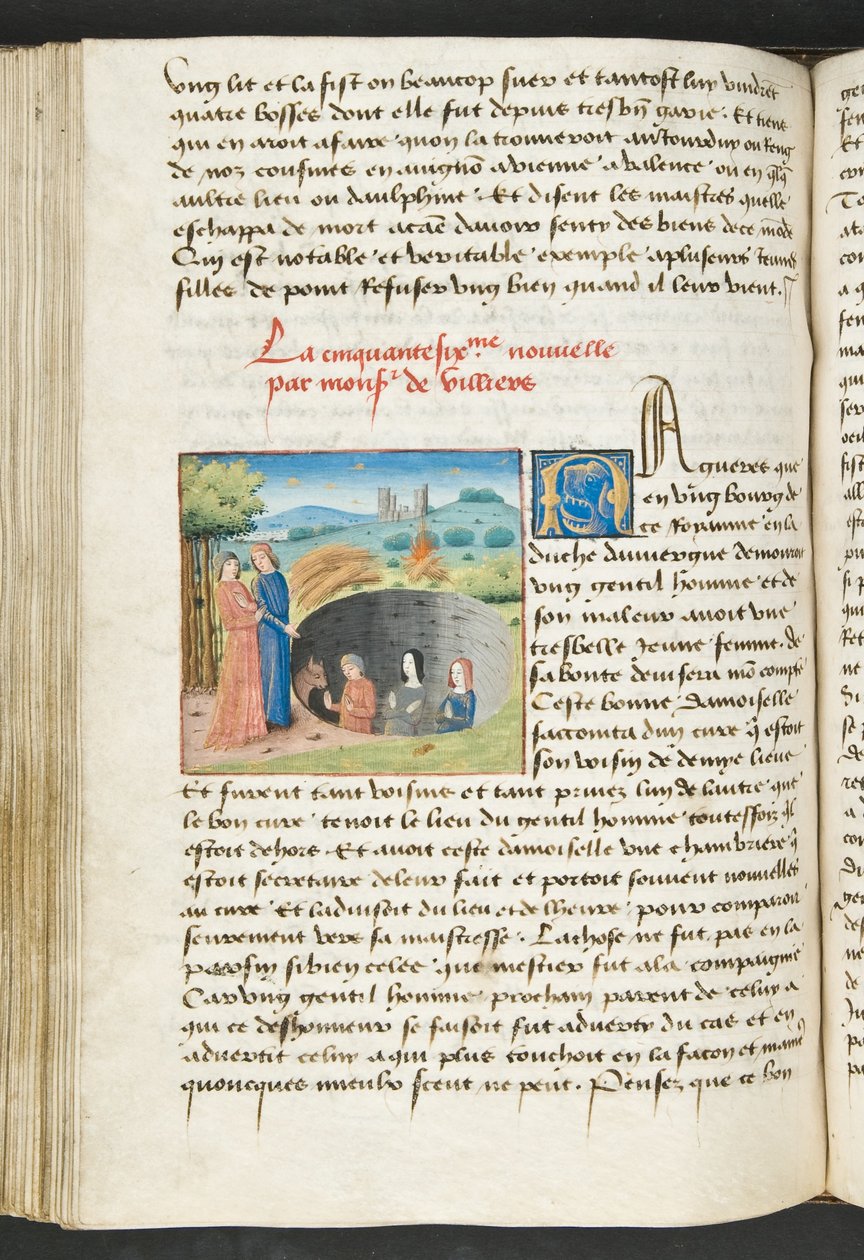 ung lit et la fist on beaucop suer et tantost luy vindrẽt
quatre bosses dont elle fut depuis tresbñ garie. Et tiens
qui en aroit afaire quon la trouveroit au Jourduy ou Reng
de noz cousines en avignõ avienne avalence ou en q̃lq̃
aultre lieu ou daulphine. Et disent les maistres quelle
eschappa de mort acãẽ davoir senty des biens de ce mõde
Qui est notable et veritable exemple apluseurs Jeunes
filles de point Refuser ung bien quand il leur vient.
La cinquantesixme. nouvelle
par monsr de Villiers
NAgueres que
en ung bourg de
ce Royaume en la
duche dauvergne demouroit
ung gentil homme et de
son maleur avoit une
tresbelle Jeune femme. de
sa bonte devisera mõ compte
Ceste bonne damoiselle
saccointa dun cure q̃ estoit
son voisin de demye lieue
Et furent tant voisins et tant privez lun de lautre que
le bon cure tenoit le lieu du gentil homme touteffoiz q̃l
estoit dehors. Et avoit ceste damoiselle une chambriere q̃
estoit secretaire de leur fait et portoit souvent nouvelles
au cure Et ladvisoit du lieu et de lheure pour comparoir
seurement vers sa maistresse. La chose ne fut pas en la
parfin si bien celee que mestier fut a la compaignie
Car ung gentil homme prochain parent de celuy a
qui ce deshonneur se faisoit fut adverty du cas et en
advertit celuy a qui plus touchoit en la facon et maniẽ
quoncques mieulx sceut ne peut. Pensez que ce bon